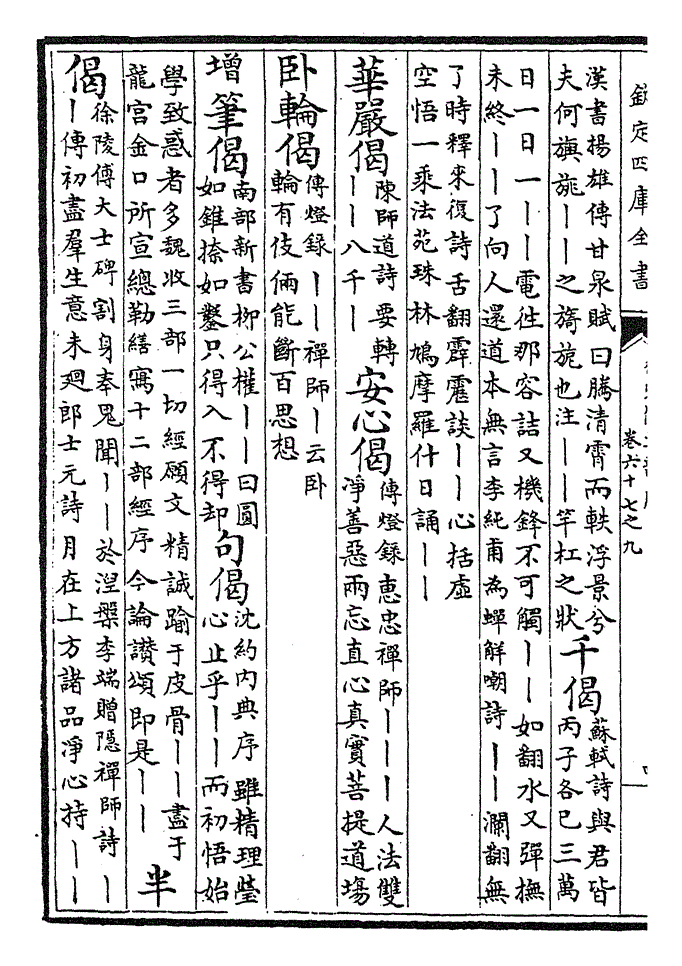 欽定四庫全書
卷六十七之九
漢書揚雄傳甘泉賦曰騰清霄而軼浮景兮
夫何旟旐丨丨之旖旎也注丨丨竿杠之狀
千偈
蘇軾詩與君皆
丙子各已三萬
日一日一丨丨電徃那容詰又機鋒不可觸丨丨如翻水又彈撫
未終丨丨了向人還道本無言李純甫為蟬解嘲詩丨丨瀾翻無
了時釋來復詩舌翻霹靂談丨丨心括虛
空悟一乘法苑珠林鳩摩羅什日誦丨丨
華嚴偈
陳師道詩要轉
丨丨八千丨
安心偈
傳燈錄惠忠禪師丨丨丨人法雙
淨善惡兩忘直心真實菩提道場
卧輪偈
傳燈錄丨丨禪師丨云卧
輪有伎倆能斷百思想
增
筆偈
南部新書柳公權丨丨曰圓
如錐捺如鑿只得入不得却
句偈
沈約內典序雖精理瑩
心止乎丨丨而初悟始
學致惑者多魏收三部一切經願文精誠踰于皮骨丨丨盡于
龍宫金口所宣總勒繕寫十二部經序今論讚頌即是丨丨
半
偈
徐陵傅大士碑割身奉鬼聞丨丨於涅槃李端贈隱禪師詩丨
丨傳初盡羣生意未廻郎士元詩月在上方諸品淨心持丨丨